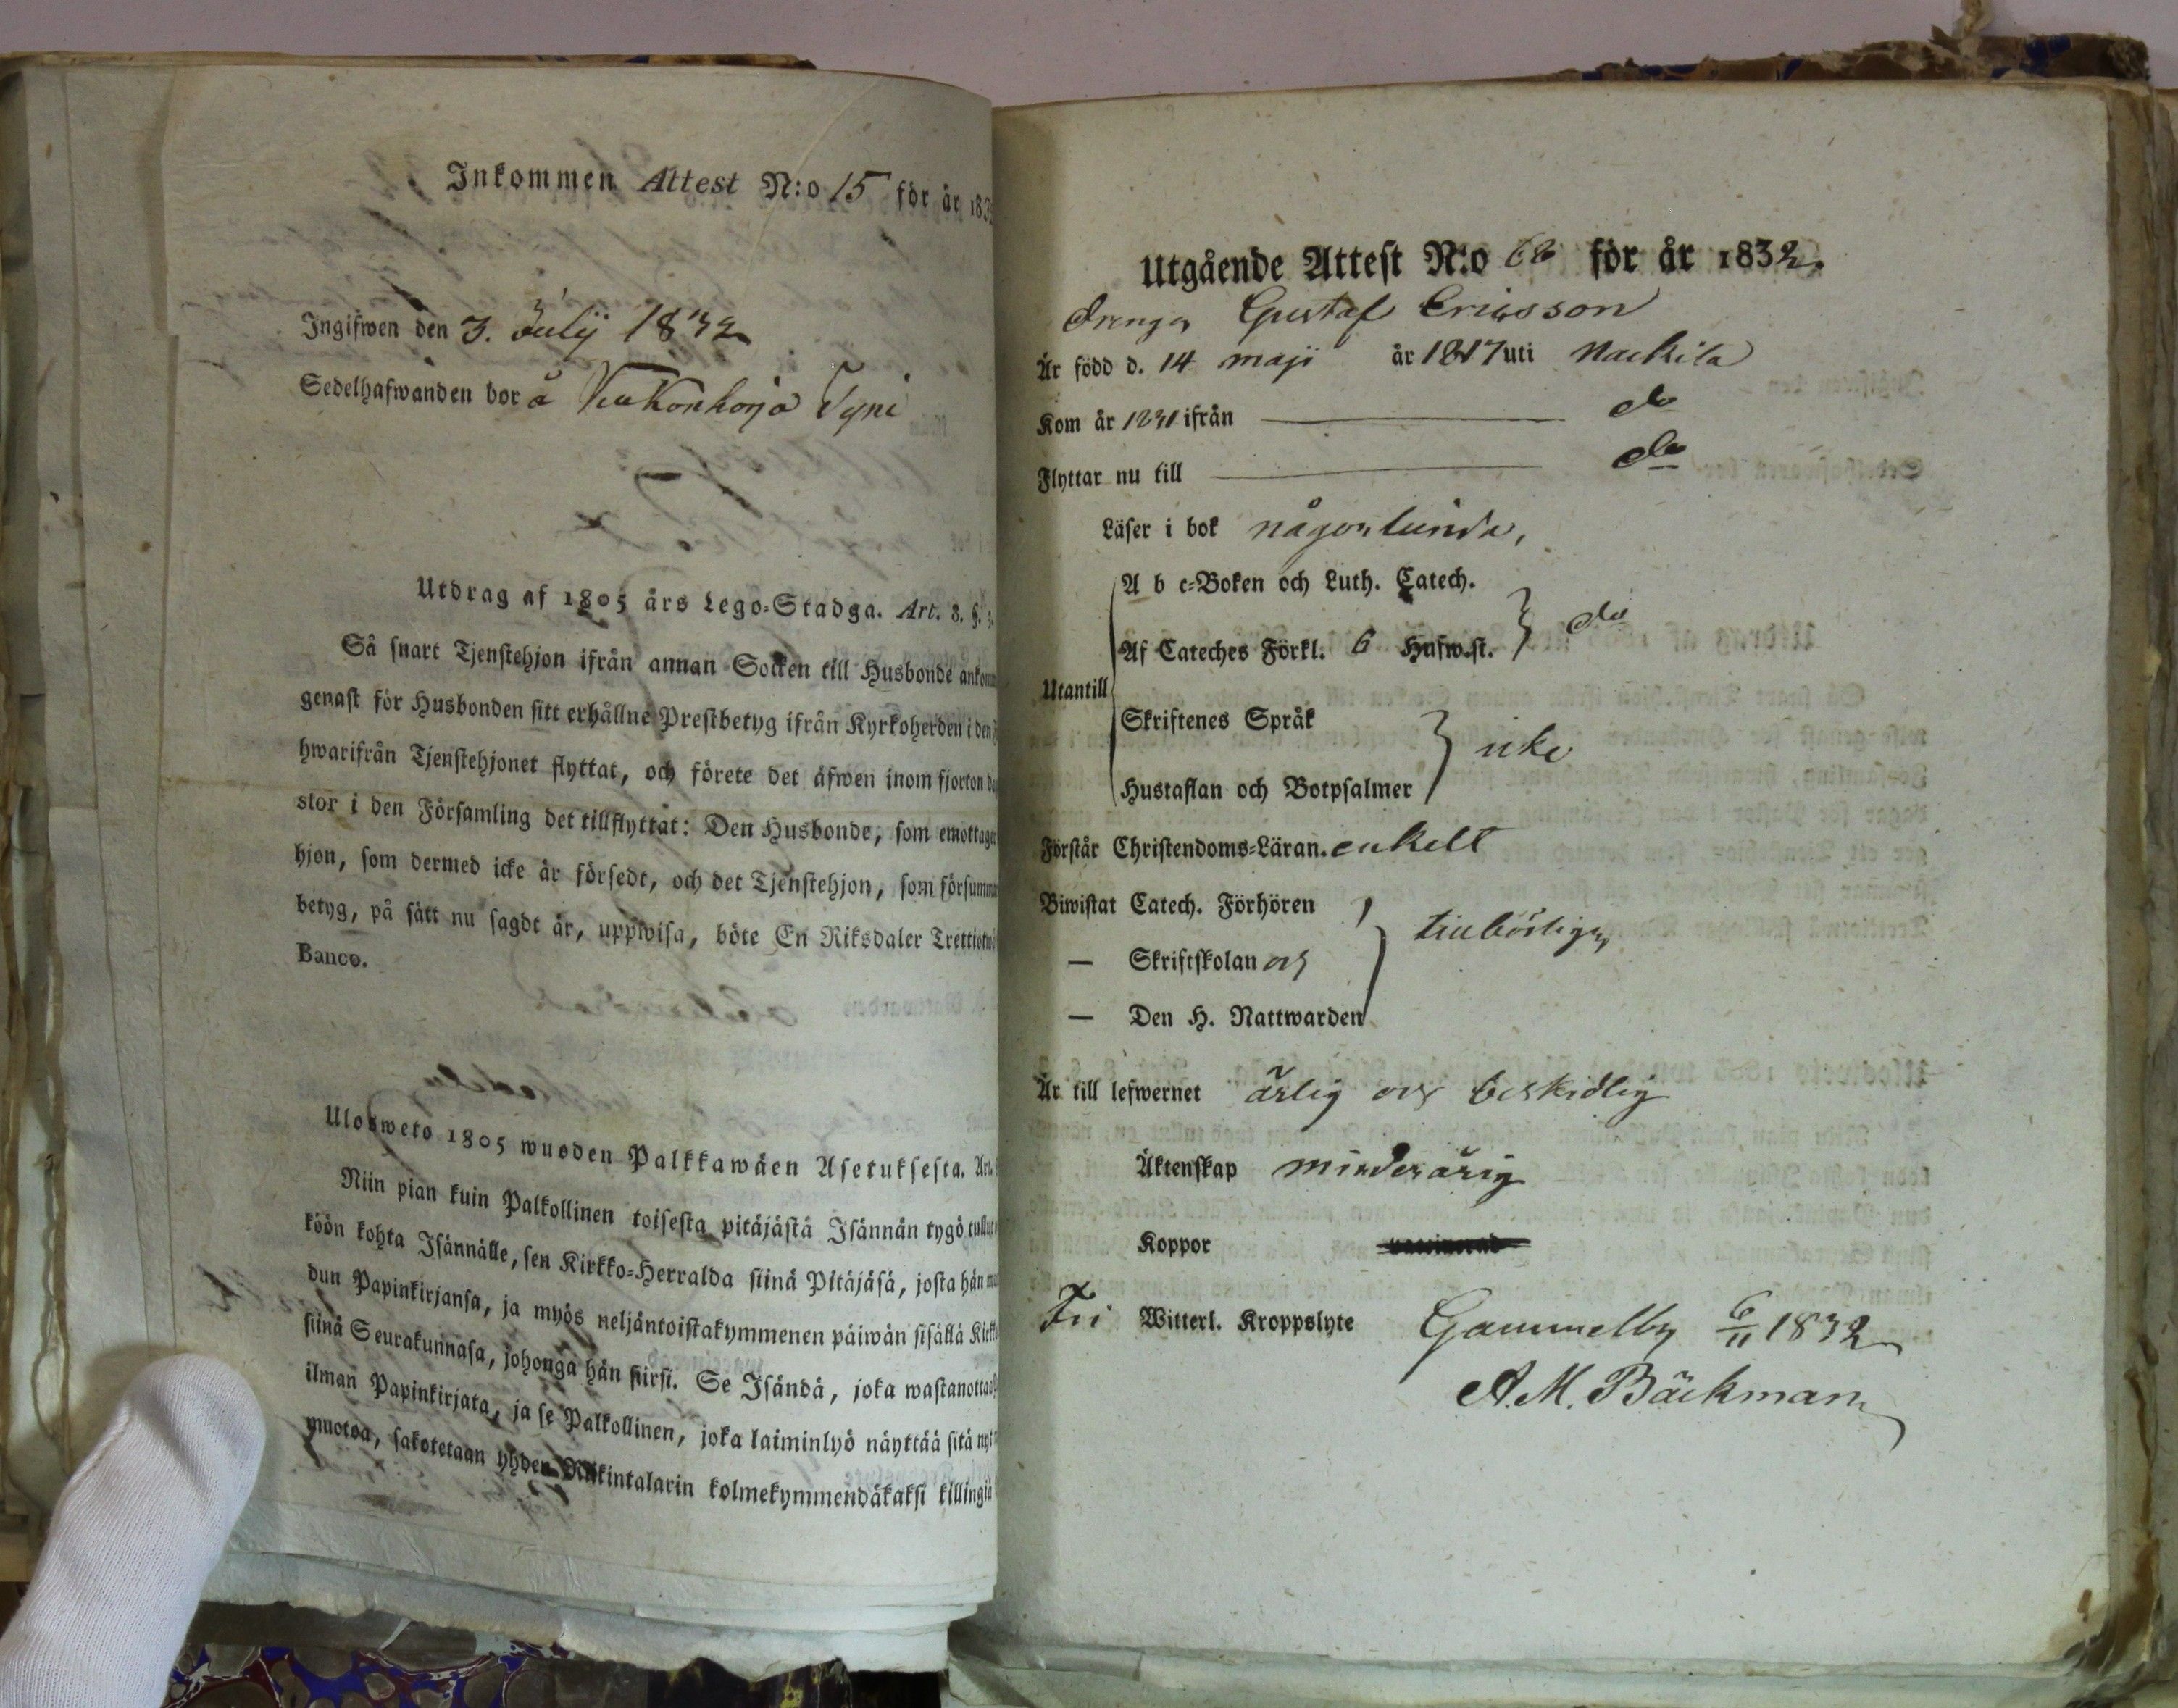 Inkommen Attest N:o 15 för år 183
Ingifwen den 3. Julij 1832
Sedelhafwanden bor å Tyni
Utdrag af 1805 års Lego-Stadga. Art. 8. §. 3.
Så snart Tjenstehjon ifrån annan Socken till Husbonde
genast för Husbonden sitt erhållne Prestbetyg ifrån Kyrkoherden i den
hwarifrån Tjenstehjonet flyttat, och förete det äfwen inom fjorton
stor i den Församling det tillflyttat: Den Husbonde, som emottager
hjon, som dermed icke är försedt, och det Tjenstehjon, som försummar
betyg, på sätt nu sagdt är, uppwisa, böte En Riksdaler
Banco.
Ulosweto 1805 wuoden Palkkawäen Asetuksesta. Art.
Niin pian kuin Palkollinen toisesta pitäjästä Isännän tygö tullut
köön kohta Isännälle, sen Kirkko-Herralda siinä Pitäjäsä, josta hän
dun Papinkirjansa, ja myös neljäntoistakymmenen päiwän sisällä
siinä Seurakunnasa, johonga hän siirsi. Se Isändä, joka
ilman Papinkirjata, ja se Palkollinen, joka laiminlyö näyttää sitä
muotoa, sakotetaan yhden Riikintalarin kolmekymmendäkaksi killingiä
Utgående Attest N:o 68 för år 1832.
Drengen Gustaf Ericsson
Är född d. 14 maji år 1817 uti Nackila
Kom år 1831 ifrån do
Flyttar nu till do
Läser i bok någorlunda,
A b c-Boken och Luth. Catech.
Af Cateches Förkl. 6 Hufw.st. do
Utantill
Skriftenes Språk
icke
Hustaflan och Botpsalmer
Förstår Christendoms-Läran. enkelt
Biwistat Catech. Förhören
tillbörligen
— Skriftskolan och
— Den H. Nattwarden
Är till lefwernet ärlig och beskedlig
Äktenskap minderårig
Koppor
Fri Witterl. Kroppslyte Gammelby 6/11 1832
A. M. Bäckman